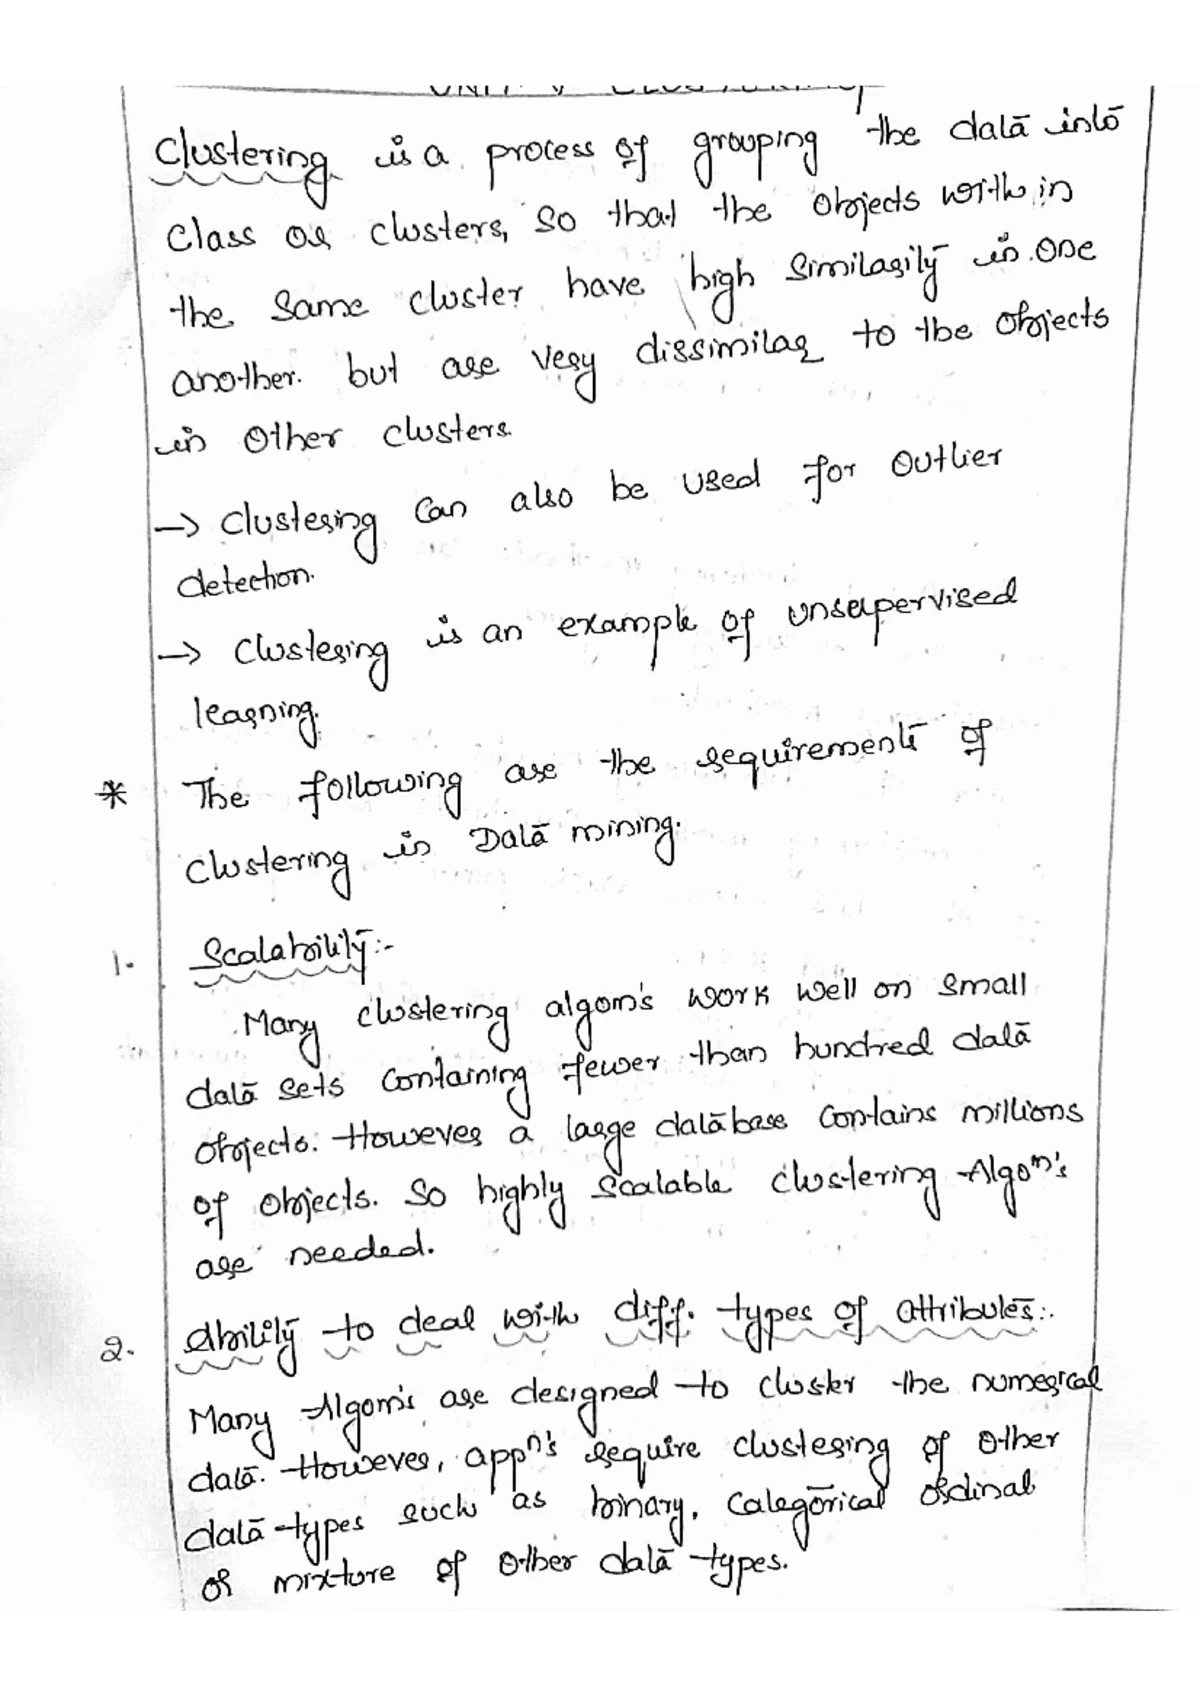 UNIT - V CLUSTERING
Clustering is a process of grouping the data into
Class or clusters, so that the objects with in
the same cluster have high similarity in one
another. but are very dissimilar to the objects
in other clusters.
→ Clustering can also be used for outlier
detection.
→ Clustering is an example of unsupervised
learning.
* The following are the requirements of
Clustering in Data mining.
1. Scalability:-
Many clustering algom's work well on small
data sets containing fewer than hundred data
objects. However a large database contains millions
of objects. So highly scalable clustering Algoᵐ's
are needed.
2. Ability to deal with diff. types of attributes:-
Many Algom's are designed to cluster the numerical
data. However, appⁿ's require clustering of other
data types such as binary, categorical ordinal
or mixture of other data types.